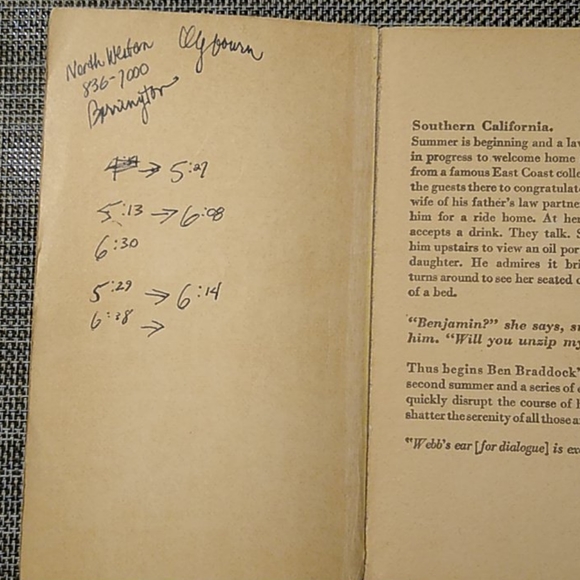 North Western Clybourn
836-7000
Barrington
→ 5:27
5:13 → 6:08
6:30
5:29 → 6:14
6:38 →
Southern California.
Summer is beginning and a
in progress to welcome home
from a famous East Coast
the guests there to congratulat
wife of his father's law partne
him for a ride home. At
accepts a drink. They talk.
him upstairs to view an oil
daughter. He admires it
turns around to see her seated
of a bed.
"Benjamin?" she says,
him. "Will you unzip
Thus begins Ben Braddock'
second summer and a series of
quickly disrupt the course of
shatter the serenity of all those
"Webb's ear [for dialogue] is